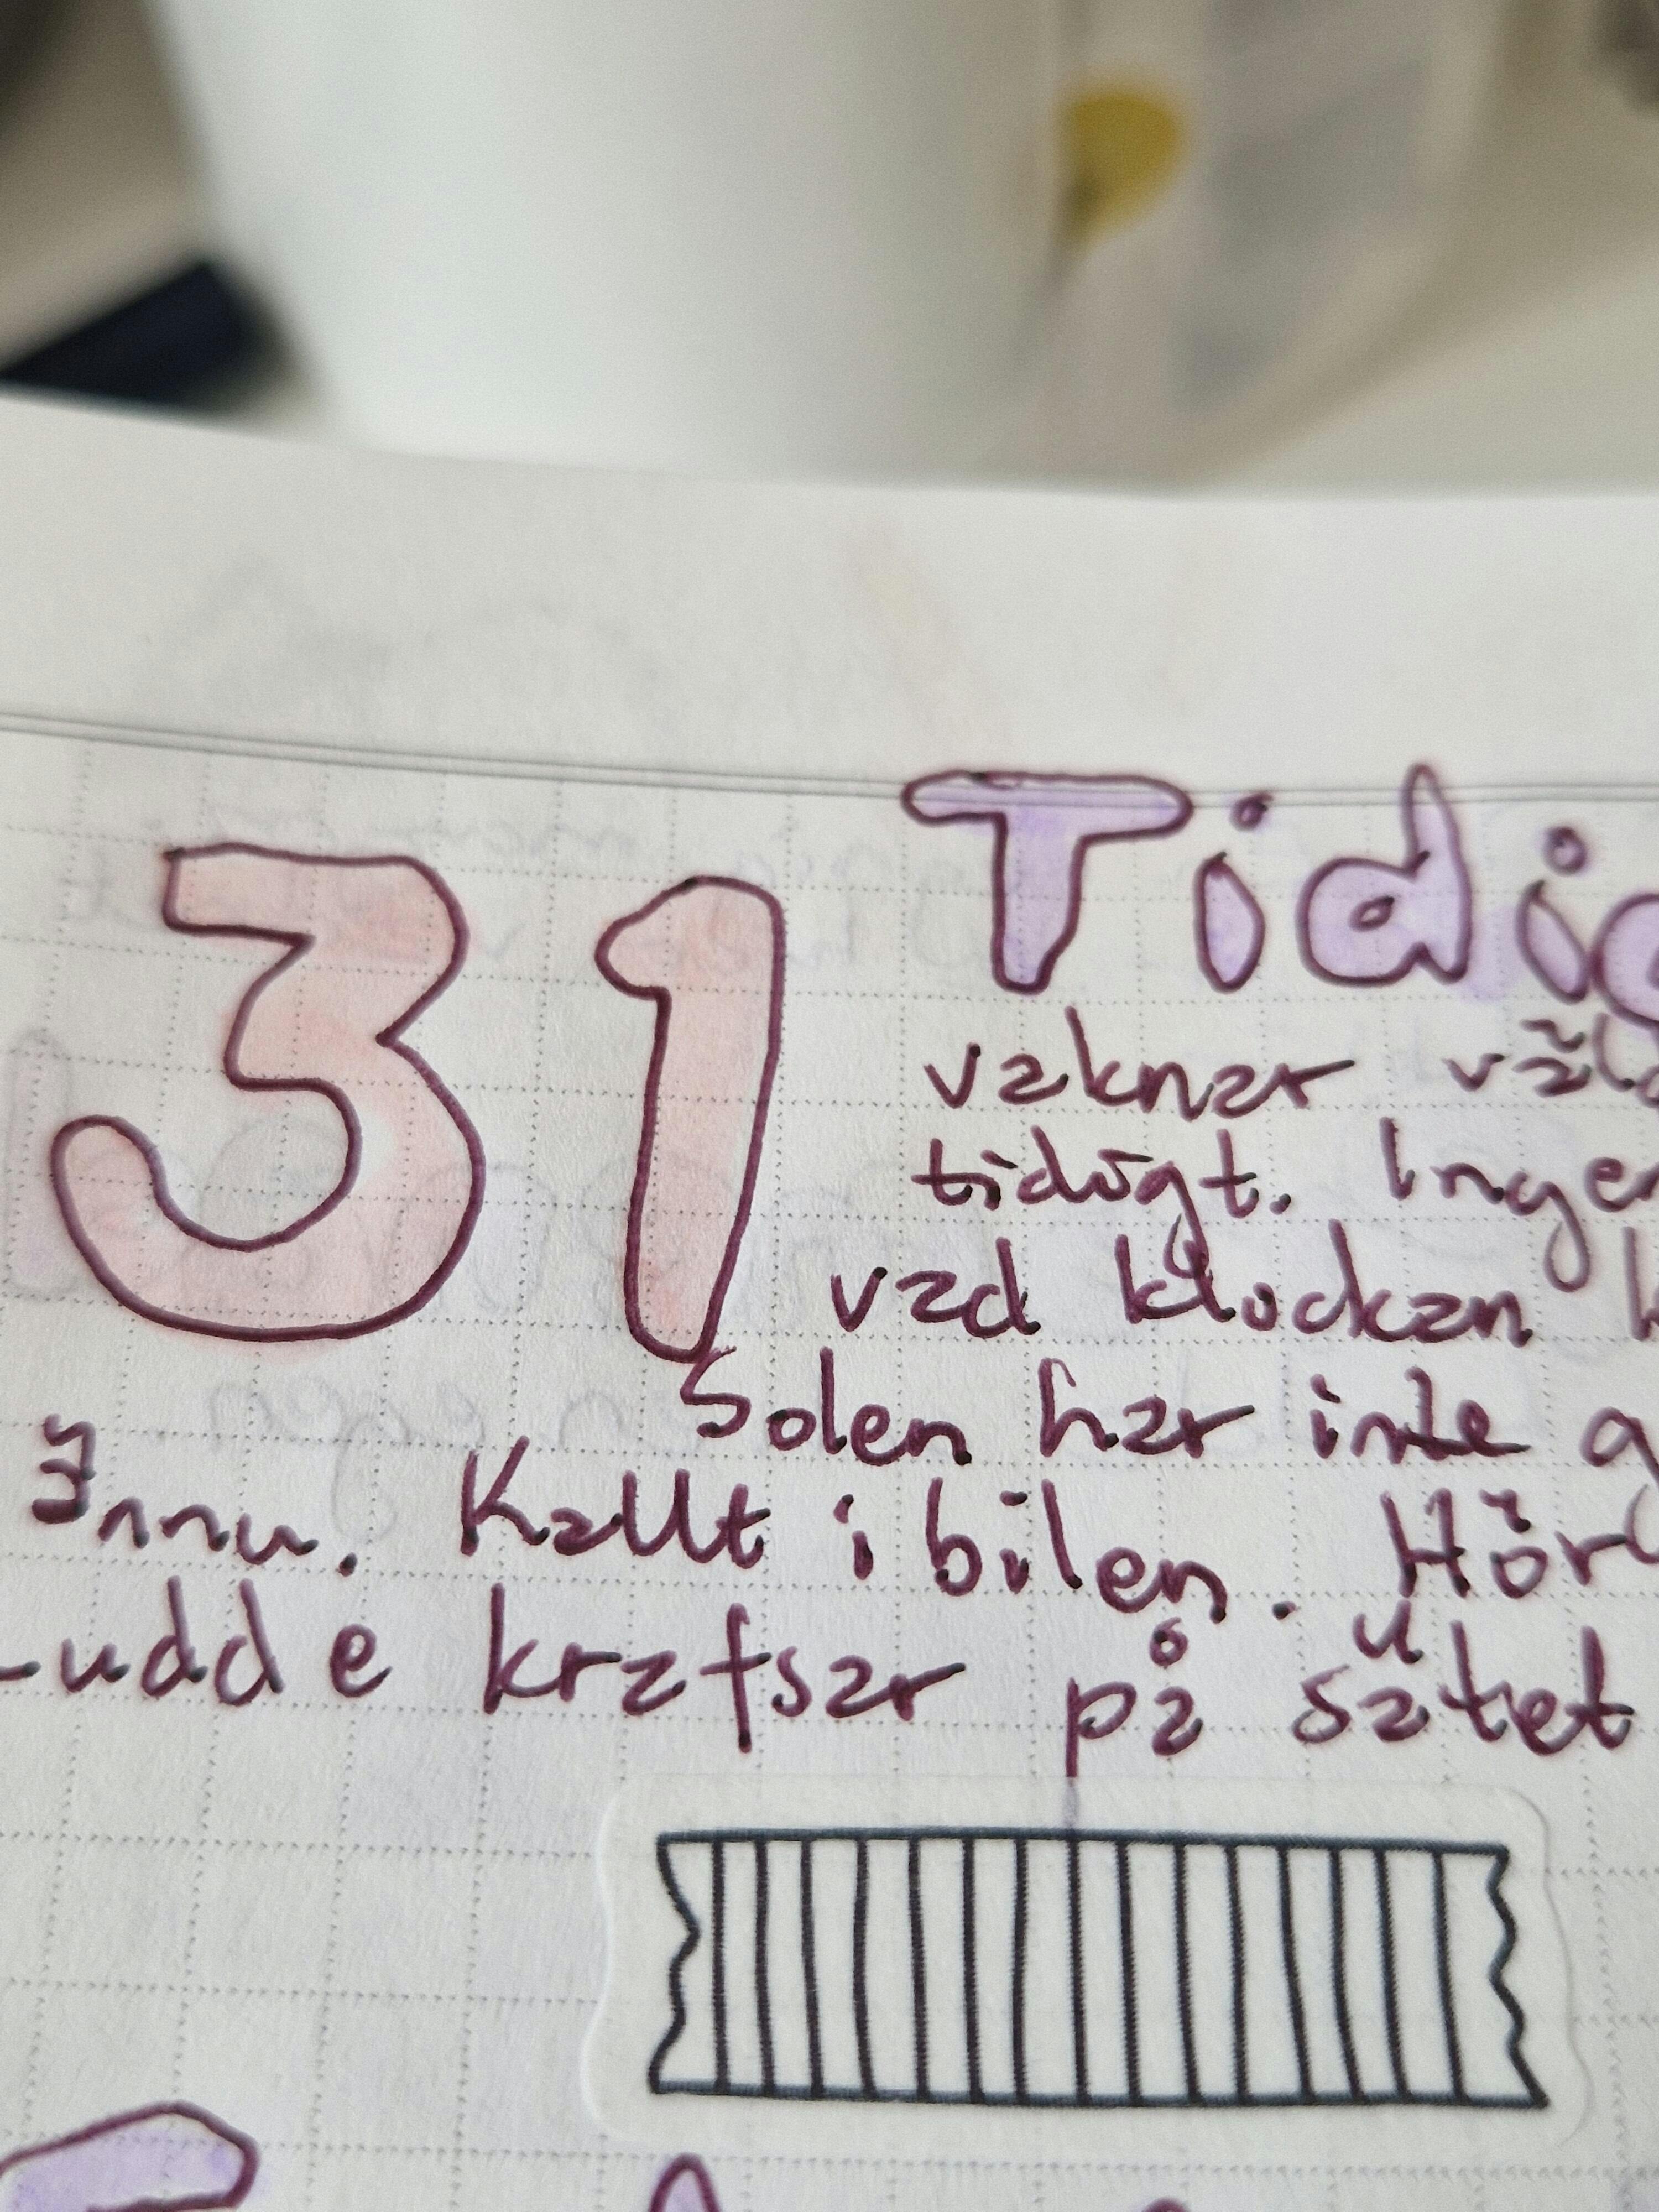 31 Tidig
vaknar väld
tidigt. Ingen
vad klockan
Solen har inte
ännu. Kallt i bilen. Hör
Ludde krafsar på sätet